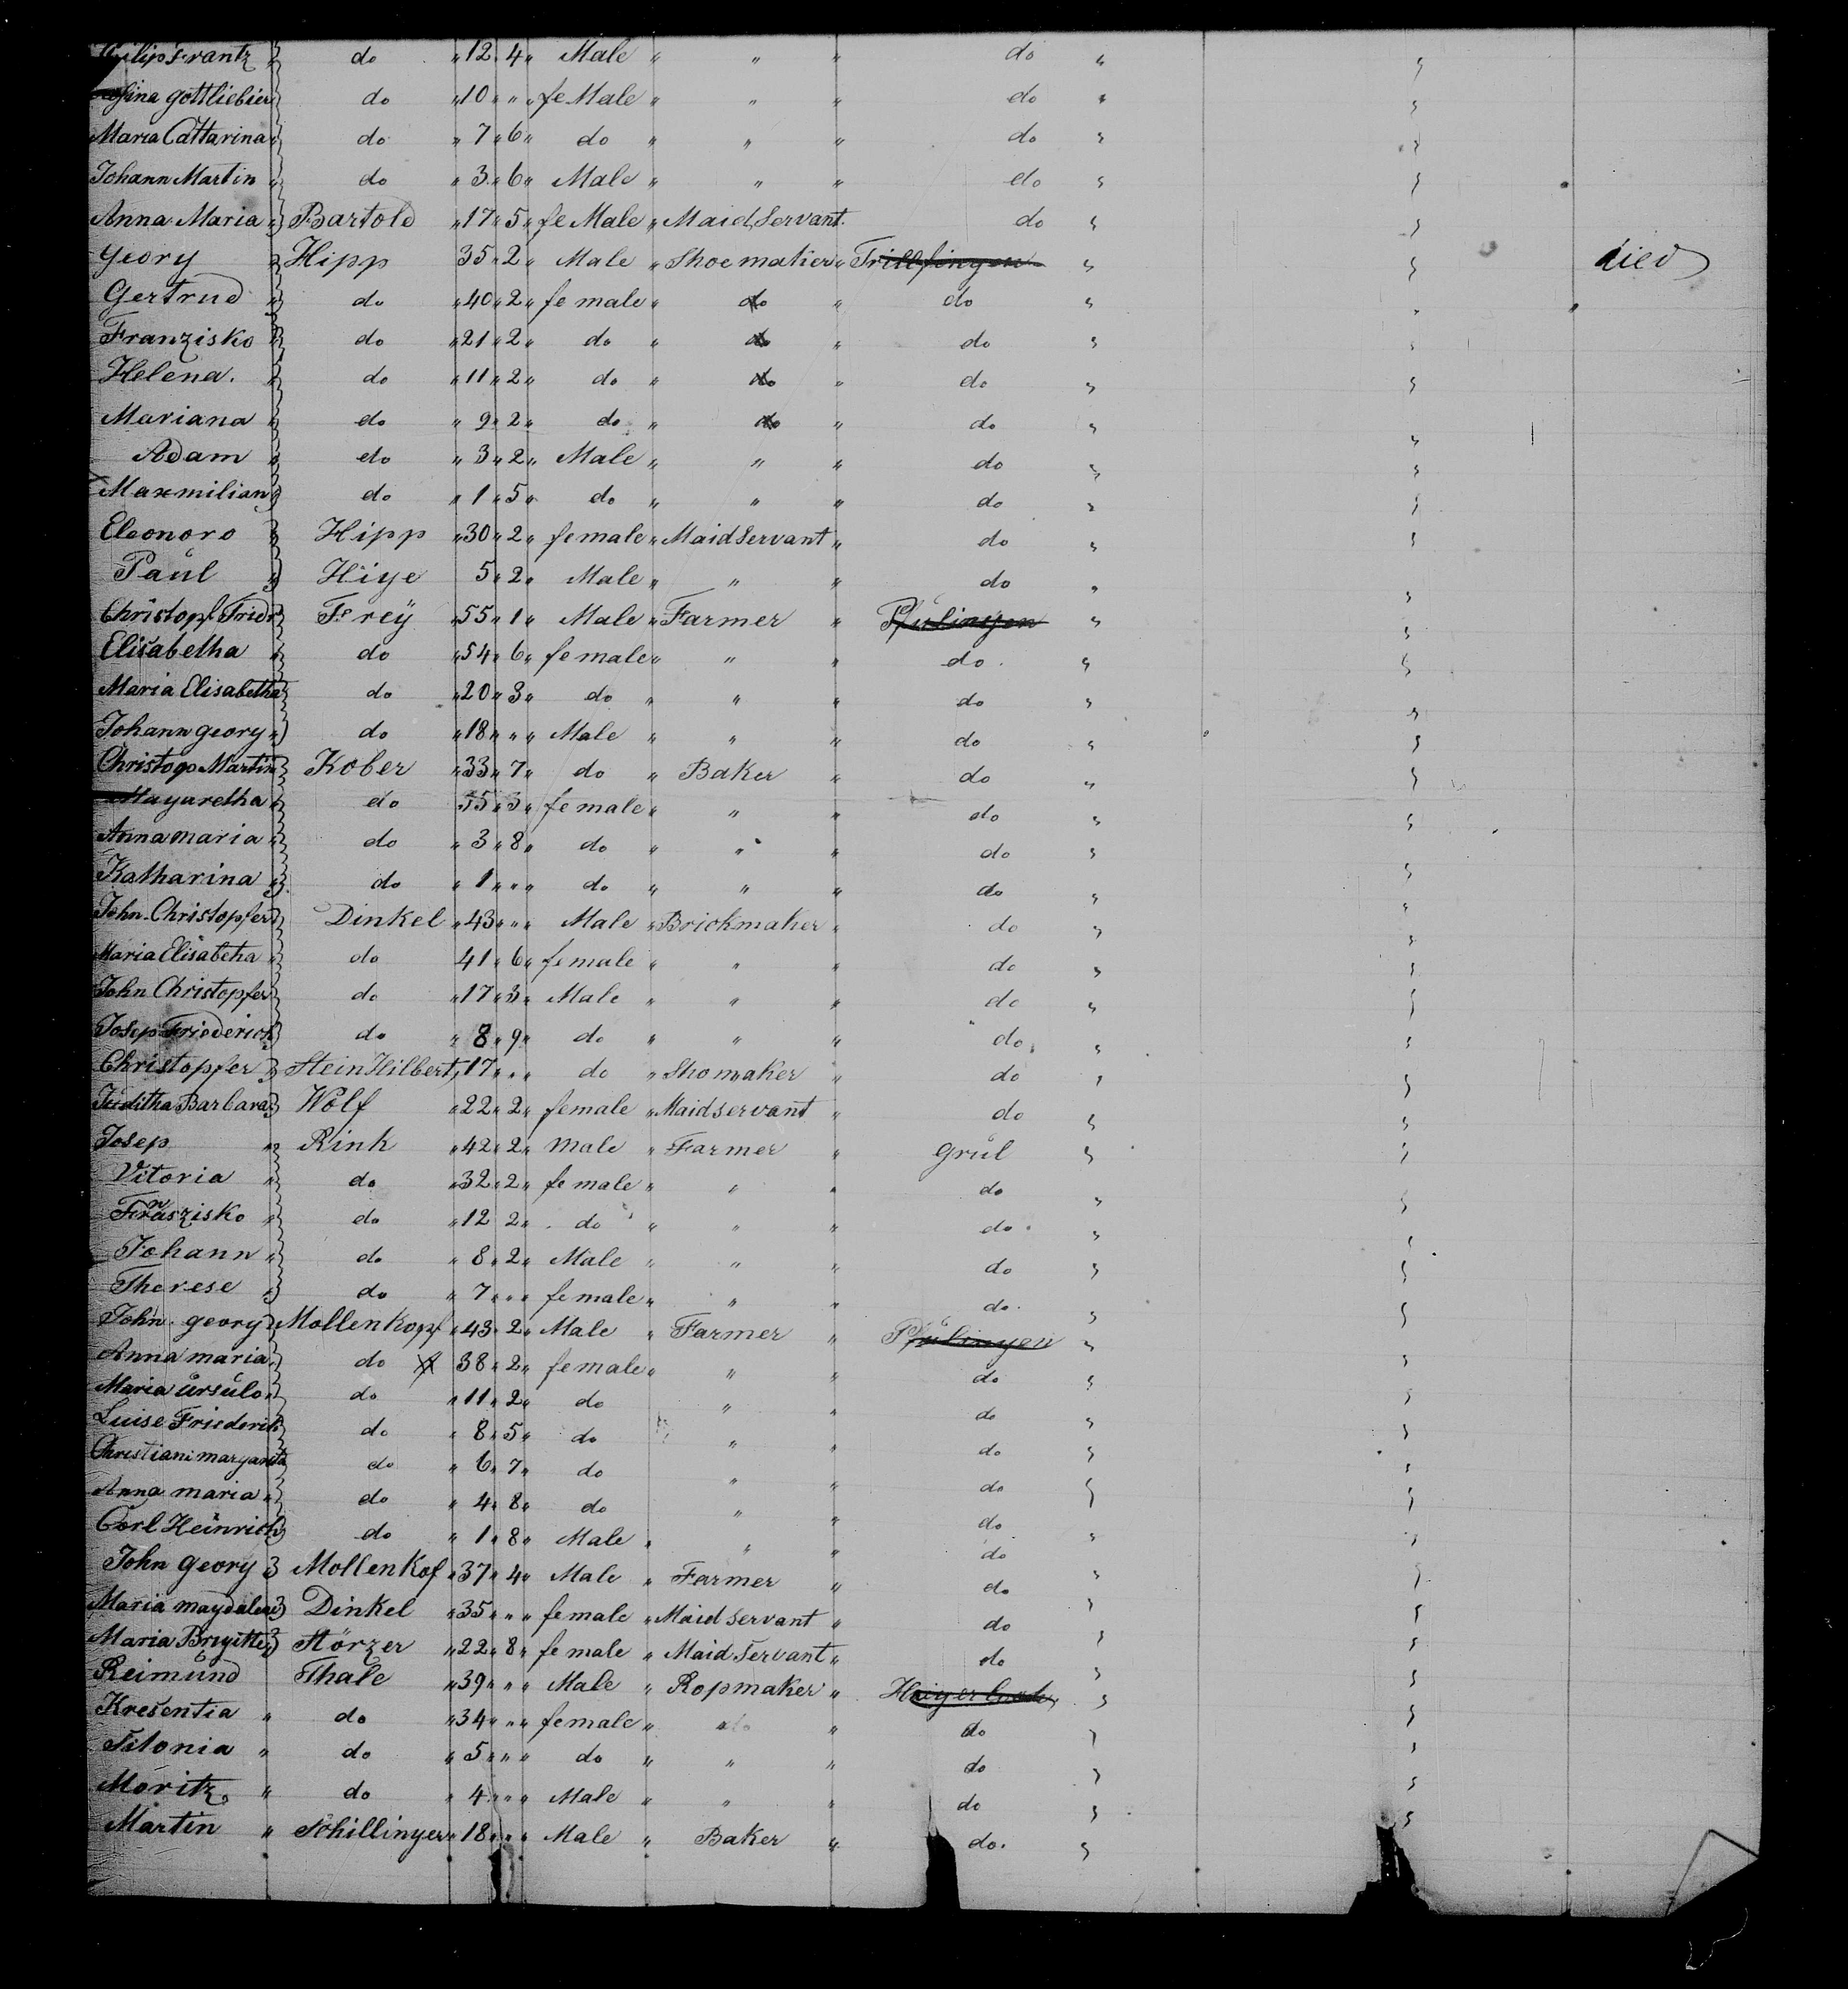 Frantz " do " 12 " 4 " Male " " " do "
gottliebien do " 10 " " " feMale " " " do "
Maria Cattarina " do " 7 " 6 " do " " " do "
Johann Martin " do " 3 " 6 " Male " " " do "
Anna Maria " Bartold " 17 " 5 " feMale " Maid Servant " do "
Geory " Hipp 35 " 2 " Male " Shoematier " Trillfinyen " died
Gertrud " do " 40 " 2 " female " do " do "
Franzisko " do " 21 " 2 " do " do " do "
Helena. " do " 11 " 2 " do " do " do "
Mariana " do " 9 " 2 " do " do " do "
Adam " do " 3 " 2 " Male " " " do "
Maxmilian " do " 1 " 5 " do " " " do "
Eleonoro " Hipp " 30 " 2 " female " Maid Servant " do "
Paul " Hiye 5 " 2 " Male " " " do "
Christopf Fridr Frey " 55 " 1 " Male " Farmer " Pfulinyen "
Elisabetha " do " 54 " 6 " female " " " do "
Maria Elisabetha do " 20 " 3 " do " " " do "
Johann geory " do " 18 " " " Male " " " do "
Christop Martin Kober " 33 " 7 " do " Baker " do "
Mayaretha do 35 " 3 " female " " " do "
Anna maria " do " 3 " 8 " do " " " do "
Katharina " do " 1 " " " do " " " do "
John Christopfer Dinkel " 43 " " " Male " Brickmaker " do "
Maria Elisabeha " do 41 " 6 " female " " " do "
John Christopfer do " 17 " 3 " Male " " " do "
Josep Friederich do " 8 " 9 " do " " " do "
Christopfer Stein Hilbert " 17 " " " do " Shomaker " do "
Juditha Barbara Wolf " 22 " 2 " female " Maidservant " do "
Josep " Rink " 42 " 2 " male " Farmer " Grul "
Vitoria " do " 32 " 2 " female " " " do "
Franszisko " do " 12 2 " do " " " do "
Johann " do " 8 " 2 " Male " " " do "
Therese " do " 7 " " " female " " " do "
John geory " Mollenkopf " 43 " 2 " Male " Farmer " Pfulinyen "
Anna maria " do X 38 " 2 " female " " " do "
Maria ursulo " do " 11 " 2 " do " " do "
Luise Friederik do " 8 " 5 " do " " do "
Christiani margareta do " 6 " 7 " do " " do "
Anna maria " do " 4 " 8 " do " " do "
Carl Heinrich do " 1 " 8 " Male " " " do "
John geory Mollenkof " 37 " 4 " Male " Farmer " do "
Maria maydalene Dinkel " 35 " " " female " Maid servant " do "
Maria Briyitte Störzer " 22 " 8 " female " Maid Servant " do "
Reimund Thale " 39 " " " Male " Ropmaker " "
Kresentia " do " 34 " " " female " do " do "
Titonia " do " 5 " " " do " " " do "
Moritz " do " 4 " " " Male " " " do "
Martin " Schillinyer " 18 " " " Male " Baker " do. "